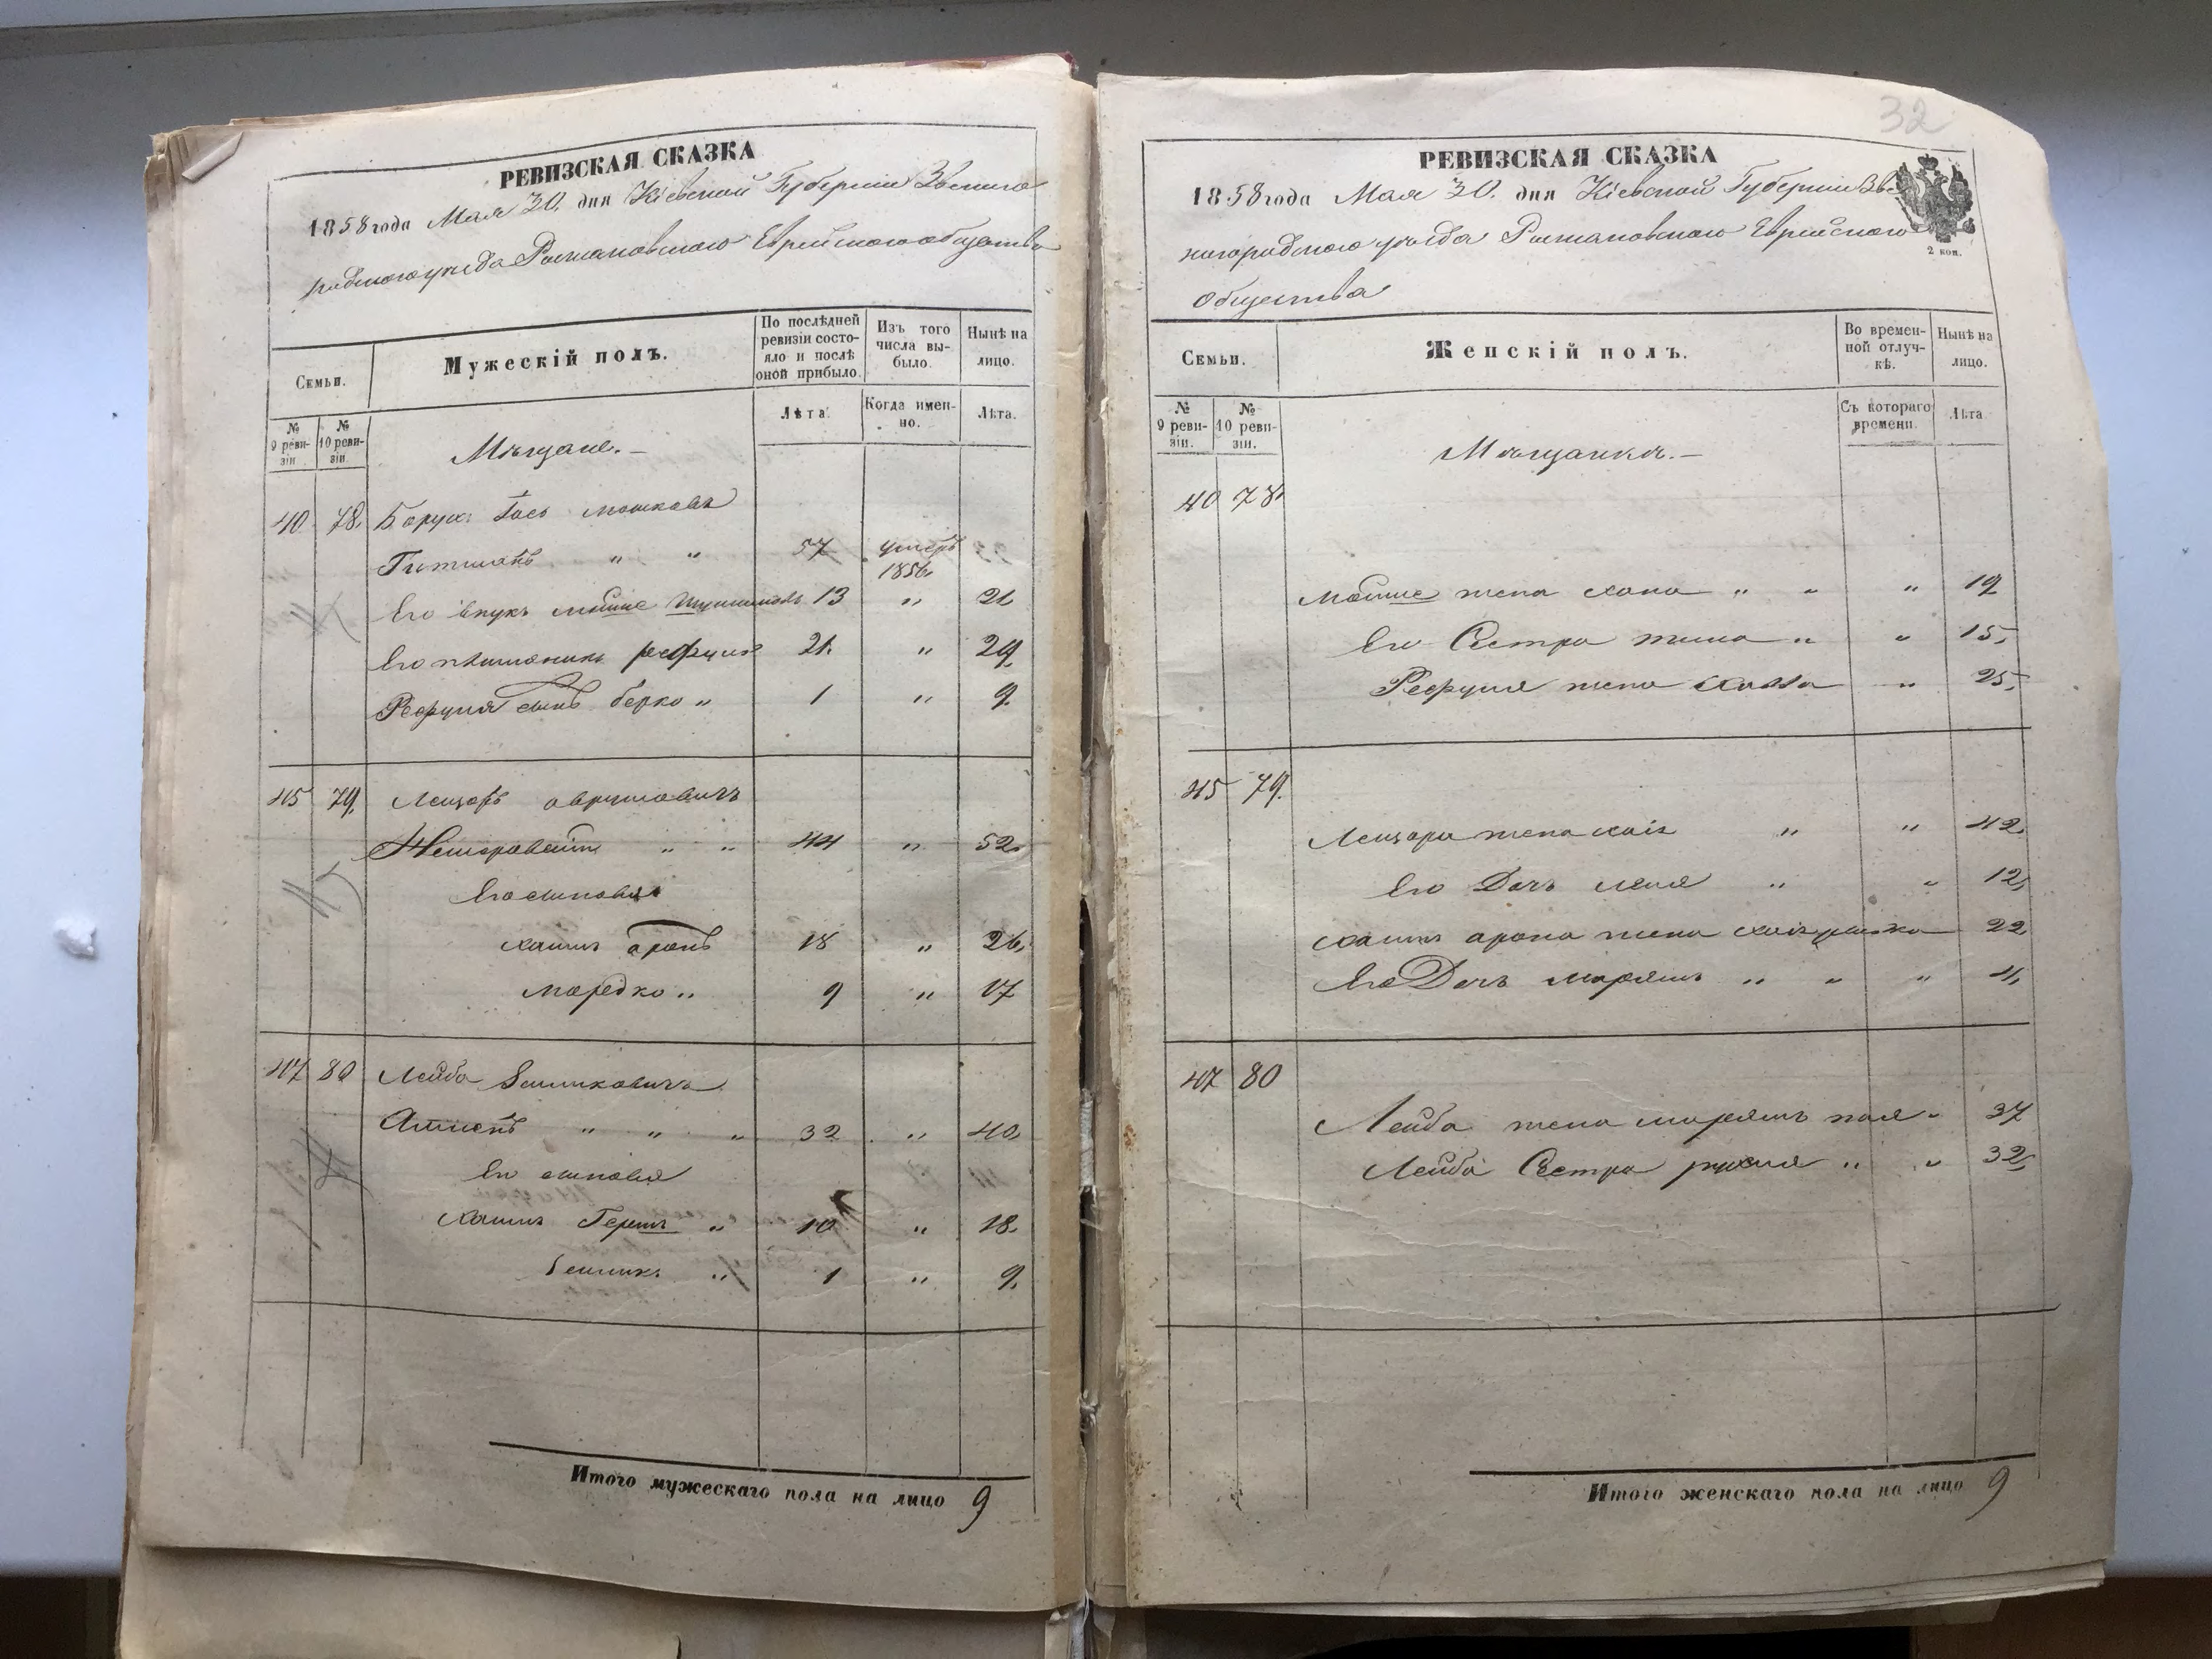 РЕВИЗСКАЯ СКАЗКА
1858 года Мая 30. дня Кіевской Губерніи Звениго
родского уезда Рыжановского Еврейского общества
Семьи.
Мужескій полъ.
По послѣдней ревизіи состояло и послѣ оной прибыло.
Изъ того числа выбыло.
Нынѣ на лицо.
№ 9 ревизіи
№ 10 ревизіи.
Мѣщане.—
Лѣта.
Когда именно.
Лѣта.
40. 78. Борух Іось Мошковъ
Гитманъ " " 57 умеръ 1856
Его внукъ Мойше 13 " 21
Его племянникъ Рефуил 21. " 29.
Рефуиля сынъ Берко " 1 " 9.
45 79. Лейзоръ Аврумовичъ
" " 44 " 52.
Его сыновья
Хаимъ Аронъ 18 " 26,
Мордко " 9 " 17
47 80 Лейба Зейликовичъ
" " " 32 " 40,
Его сыновья
Хаимъ Гершъ " 10 " 18.
Зейликъ " 1 " 9.
Итого мужескаго пола на лицо 9
32
РЕВИЗСКАЯ СКАЗКА
1858 года Мая 30. дня Кіевской Губерніи Зве
нигородского уезда Рыжановского Еврейского
общества
2 коп.
Семьи.
Женскій полъ.
Во временной отлучкѣ.
Нынѣ на лицо.
№ 9 ревизіи.
№ 10 ревизіи.
Мѣщанки.—
Съ котораго времени.
Лѣта
40 78.
Мойше жена Хана " " " 19
Его Сестра " " 15,
Рефуиля жена " 25,
45 79.
Лейзора жена Хаія " " 42.
Его Дочь Леия " " 12,
Хаимъ Арона жена 22,
Его Дочь Маріямъ " " " 4,
47 80
Лейба жена Маріямъ " 37
Лейба Сестра " " 32,
Итого женскаго пола на лицо 9